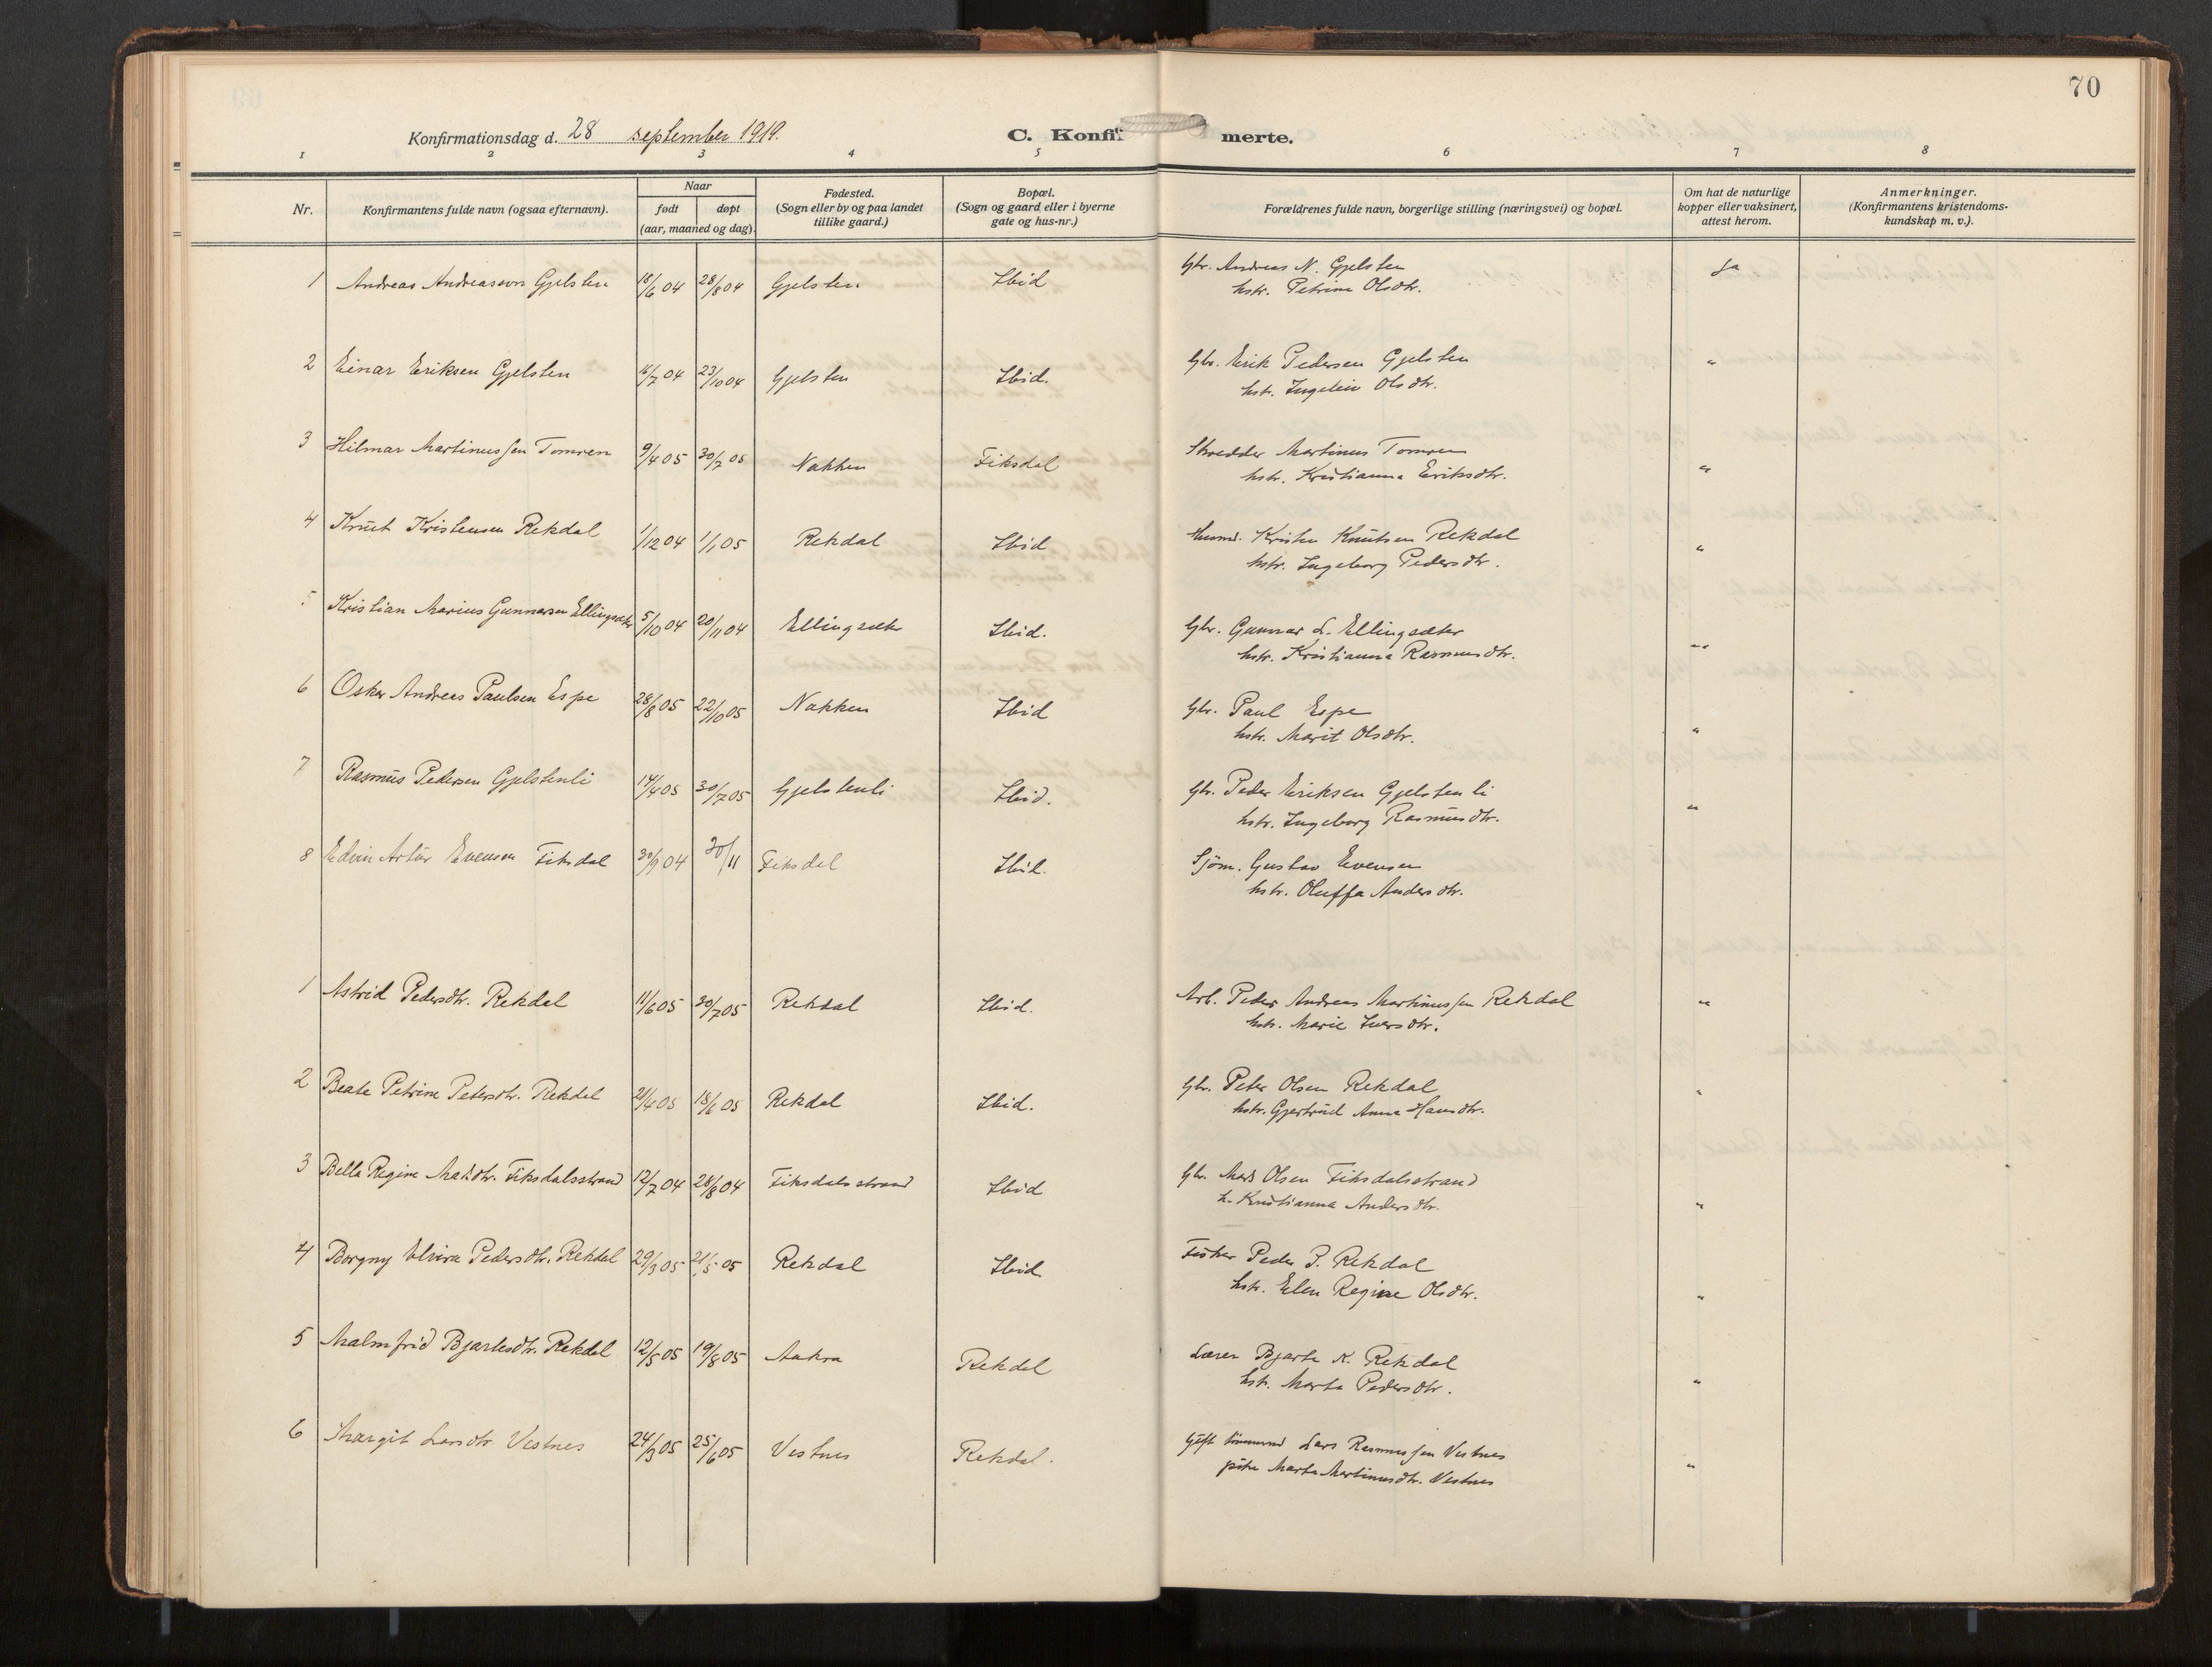 70
Konfirmationsdag d. 28 september 1919.
C. Konfir merte.
1 2 3 4 5 6 7 8
Nr.
Konfirmantens fulde navn (ogsaa efternavn).
Naar
født døpt
(aar, maaned og dag).
Fødested.
(Sogn eller by og paa landet
tillike gaard.)
Bopæl.
(Sogn og gaard eller i byerne
gate og hus-nr.)
Forældrenes fulde navn, borgerlige stilling (næringsvei) og bopæl.
Om hat de naturlige
kopper eller vaksinert,
attest herom.
Anmerkninger.
(Konfirmantens kristendoms-
kundskap m. v.).
1 Andreas Andreassen Gjelsten 18/6 04 28/8 04 Gjelsten Ibid Gbr. Andreas N. Gjelsten Ja
hstr. Petrine Olsdtr.
2 Einar Eriksen Gjelsten /7 04 23/10 04 Gjelsten Ibid. Gbr. Erik Pedersen Gjelsten "
hstr. Ingelin Olsdtr.
3 Hilmar Martinussen Tomren 9/4 05 30/7 05 Nakken Fiksdal Skredder Martinus Tomren
hstr. Kristianna Eriksdtr. "
4 Knut Kristensen Rekdal 1/12 04 1/1 05 Rekdal Ibid Kristen Knutsen Rekdal "
hstr. Ingeborg Pedersdtr.
5 Kristian Marius Gunnarsen Ellingsæter 5/10 04 20/11 04 Ellingsæter Ibid. Gbr. Gunnar L. Ellingsæter
hstr. Kristianna Rasmusdtr. "
6 Oskar Andreas Paulsen Espe 28/8 05 22/10 05 Nakken Ibid Gbr. Paul Espe
hstr. Marit Olsdtr. "
7 Rasmus Pedersen Gjelstenli 14/4 05 30/7 05 Gjelstenli Ibid. Gbr. Peder Eriksen Gjelstenli
hstr. Ingeborg Rasmusdtr. "
8 Edvin Artur Evensen Fiksdal 30/9 04 20/11 Fiksdal Ibid. Sjøm. Gustav Evensen
hstr. Oluffa Andersdtr.
1 Astrid Pedersdtr. Rekdal 11/6 05 30/7 05 Rekdal Ibid. Arb. Peder Andreas Martinussen Rekdal "
hstr. Marie Iversdtr.
2 Beate Petrine Petersdtr. Rekdal 21/4 05 18/6 05 Rekdal Ibid. Gbr. Peter Olsen Rekdal "
hstr. Gjertrud Anna Hansdtr.
3 Bella Regine Madsdtr. Fiksdalsstrand 12/7 04 28/8 04 Fiksdalsstrand Ibid Gbr. Mads Olsen Fiksdalsstrand
h. Kristianna Andersdtr. "
4 Borgny Elvira Pedersdtr. Rekdal 29/3 05 21/5 05 Rekdal Ibid Fisker Peder P. Rekdal
hstr. Elen Regine Olsdtr. "
5 Malmfrid Bjartesdtr. Rekdal 12/5 05 19/8 05 Aakra Rekdal Lærer Bjarte K. Rekdal
hstr. Marta Pedersdtr. "
6 Margit Larsdtr. Vestnes 24/3 05 25/6 05 Vestnes Rekdal. Gift tømmerm Lars Rasmussen Vestnes
pike Marta Martinusdtr. Vestnes "